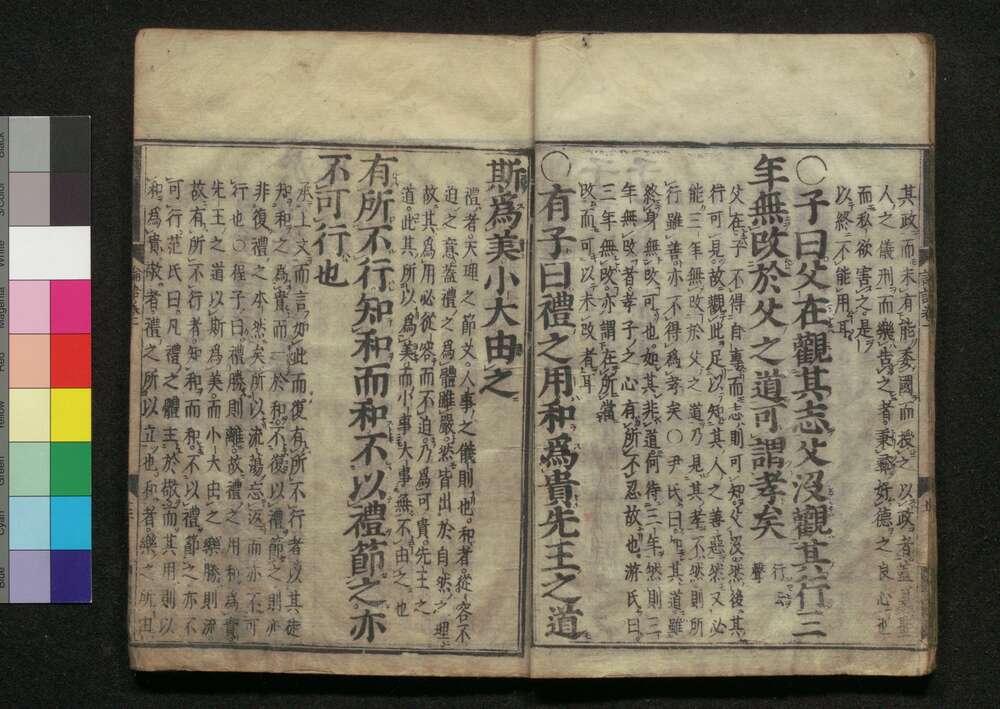 其政而未有能委國而授之以政者蓋見聖
人之儀刑而樂告之者秉彝好德之良心也
而私欲害之是
以終不能用耳
○子曰父在觀其志父沒觀其行三
年無改於父之道可謂孝矣 行 聲
父在子不得自專而志則可知父沒然後其
行可見故觀此足以知其人之善惡然又必
能三年無改於父之道乃見其孝不然則所
行雖善亦不得爲孝矣○尹氏曰如其道雖
終身無改可也如其非道何待三年然則三
年無改者孝子之心有所不忍故也游氏曰
三年無改亦謂在所當
改而可以未改者耳
○有子曰禮之用和爲貴先王之道
斯爲美小大由之
禮者天理之節文人事之儀則也和者從容不
迫之意蓋禮之爲體雖嚴然皆出於自然之理
故其爲用必從容而不迫乃爲可貴先王之
道此其所以爲美而小事大事無不由之也
有所不行知和而和不以禮節之亦
不可行也
承上文而言如此而復有所不行者以其徒
知和之爲貴而一於和不復以禮節之則亦
非復禮之本然矣所以流蕩忘返而亦不可
行也○程子曰禮勝則離故禮之用和爲貴
先王之道以斯爲美而小大由之樂勝則流
故有所不行者知和而和不以禮節之亦不
可行范氏曰凡禮之體主於敬而其用則以
和爲貴敬者禮之所以立也和者樂之所由